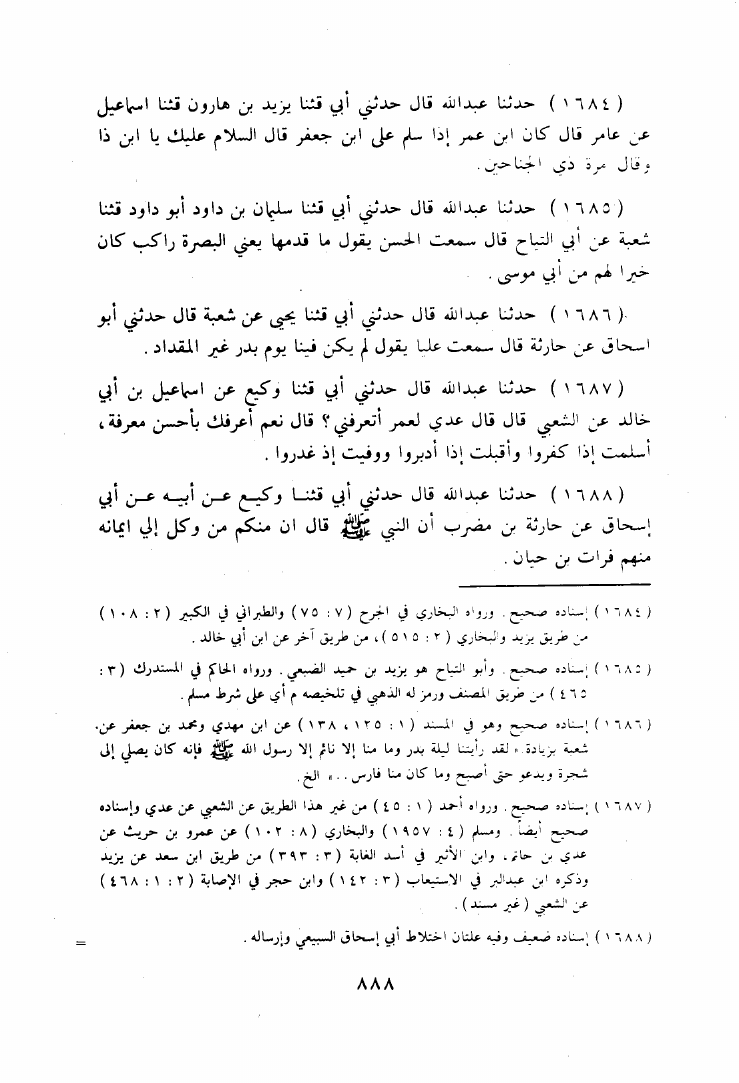 (١٦٨٤) حدثنا عبدالله قال حدثني أبي قثنا يزيد بن هارون قثنا اسماعيل
عن عامر قال كان ابن عمر إذا سلم على ابن جعفر قال السلام عليك يا ابن ذا
وقال مرة ذي الجناحين .
(١٦٨٥) حدثنا عبدالله قال حدثني أبي قثنا سليمان بن داود أبو داود قثنا
شعبة عن أبي التياح قال سمعت الحسن يقول ما قدمها يعني البصرة راكب كان
خيرا لهم من أبي موسى .
(١٦٨٦) حدثنا عبدالله قال حدثني أبي قثنا يحيى عن شعبة قال حدثني أبو
اسحاق عن حارثة قال سمعت عليا يقول لم يكن فينا يوم بدر غير المقداد .
(١٦٨٧) حدثنا عبدالله قال حدثني أبي قثنا وكيع عن اسماعيل بن أبي
خالد عن الشعبي قال قال عدي لعمر أتعرفني؟ قال نعم أعرفك بأحسن معرفة ،
أسلمت إذا كفروا وأقبلت إذا أدبروا ووفيت إذ غدروا .
(١٦٨٨) حدثنا عبدالله قال حدثني أبي قثنا وكيع عن أبيه عن أبي
إسحاق عن حارثة بن مضرب أن النبي ﷺ قال ان منكم من وكل إلي ايمانه
منهم فرات بن حيان .
(١٦٨٤) إسناده صحيح . ورواه البخاري في الجرح (٧ : ٧٥) والطبراني في الكبير (٢ : ١٠٨)
من طريق يزيد والبخاري (٢ : ٥١٥) ، من طريق آخر عن ابن أبي خالد .
(١٦٨٥) إسناده صحيح . وأبو التياح هو يزيد بن حميد الضبعي . ورواه الحاكم في المستدرك (٣ :
٤٦٥) من طريق المصنف ورمز له الذهبي في تلخيصه م أي على شرط مسلم .
(١٦٨٦) إسناده صحيح وهو في المسند (١ : ١٢٥ ، ١٣٨) عن ابن مهدي ومحمد بن جعفر عن
شعبة بزيادة « لقد رأيتنا ليلة بدر وما منا إلا نائم إلا رسول الله ﷺ فإنه كان يصلي إلى
شجرة ويدعو حتى أصبح وما كان منا فارس . . » الخ .
(١٦٨٧) إسناده صحيح . ورواه أحمد (١ : ٤٥) من غير هذا الطريق عن الشعبي عن عدي وإسناده
صحيح أيضاً . ومسلم (٤ : ١٩٥٧) والبخاري (٨ : ١٠٢) عن عمرو بن حريث عن
عدي بن حاتم ، وابن الأثير في أسد الغابة (٣ : ٣٩٣) من طريق ابن سعد عن يزيد
وذكره ابن عبدالبر في الاستيعاب (٣ : ١٤٢) وابن حجر في الإصابة (٢ : ١ : ٤٦٨)
عن الشعبي (غير مسند) .
(١٦٨٨) إسناده ضعيف وفيه علتان اختلاط أبي إسحاق السبيعي وإرساله . =
٨٨٨